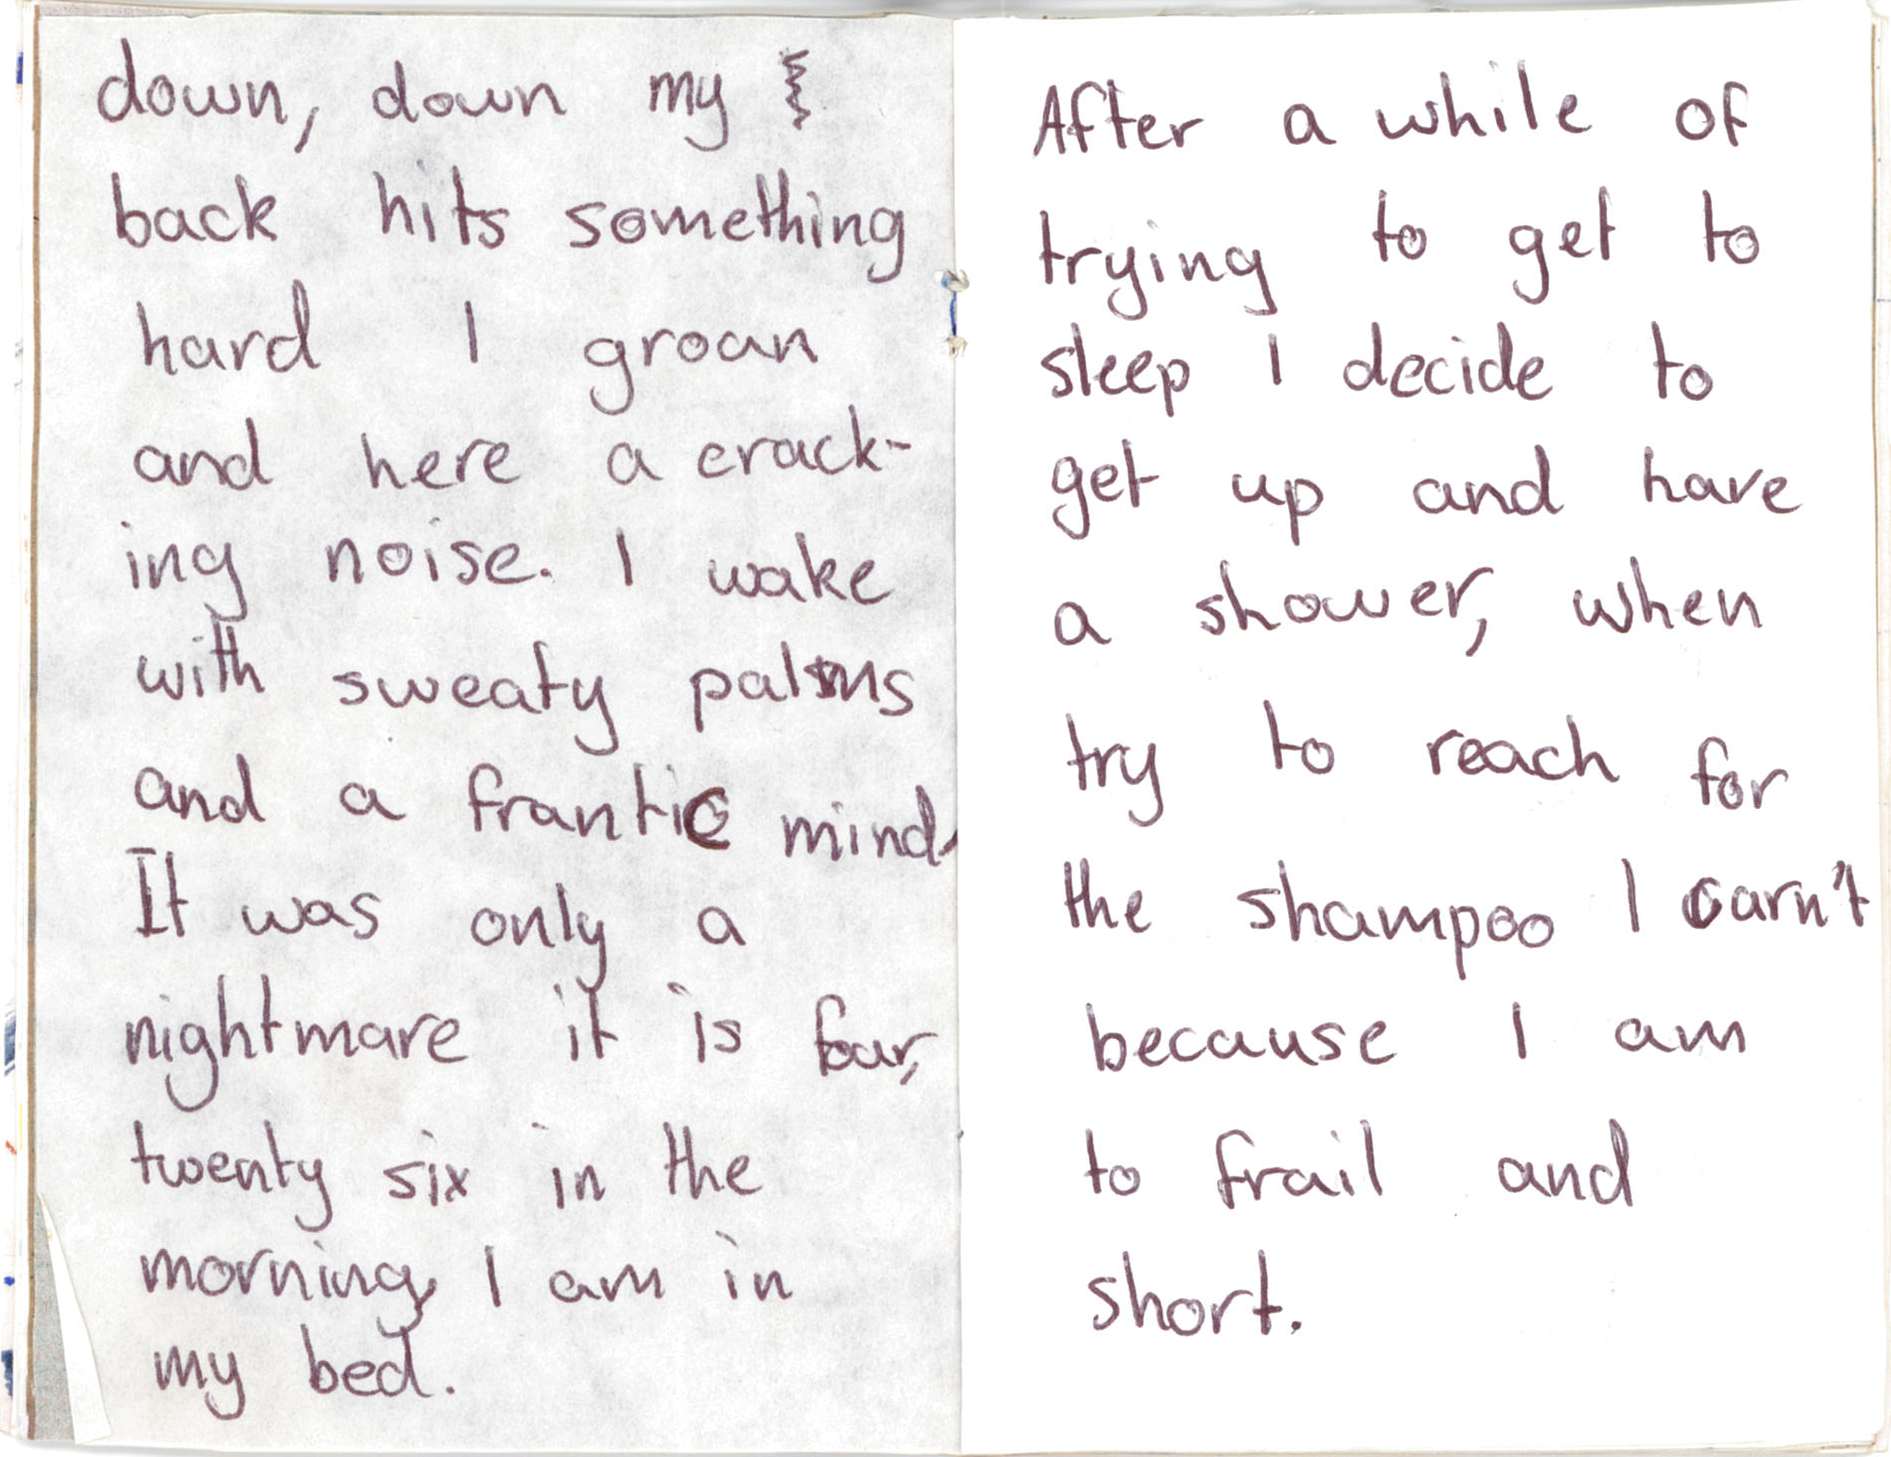 down, down my
back hits something
hard I groan
and here a crack-
ing noise. I wake
with sweaty palms
and a frantic mind.
It was only a
nightmare it is four,
twenty six in the
morning, I am in
my bed.
After a while of
trying to get to
sleep I decide to
get up and have
a shower, when
try to reach for
the shampoo I carn't
because I am
to frail and
short.